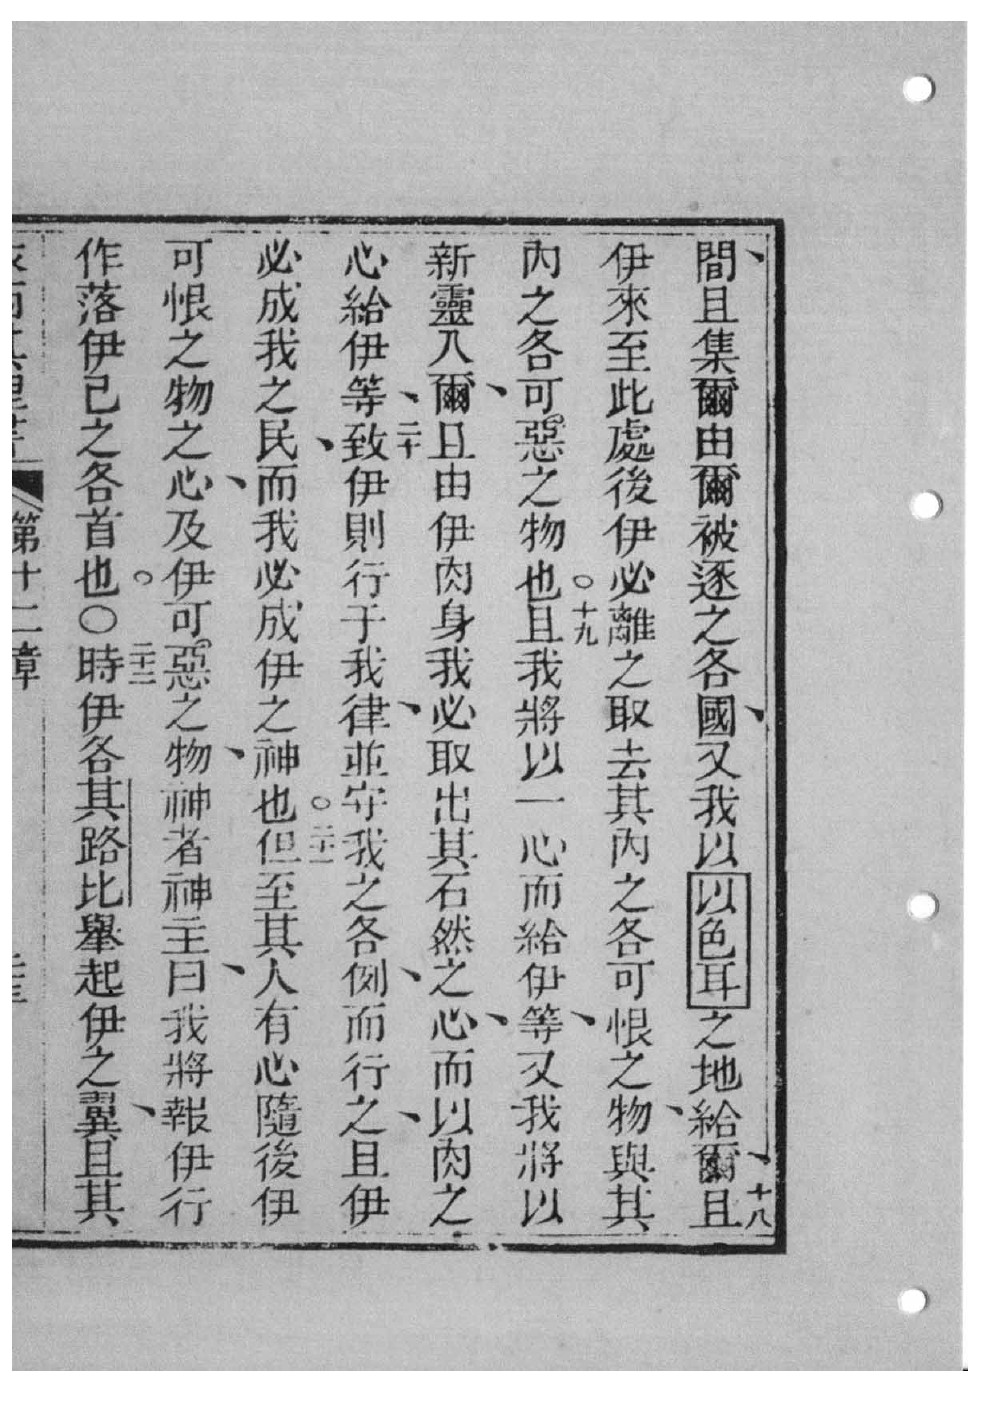 間且集爾由爾被逐之各國又我以以色耳之地給爾十八且
伊來至此處後伊必離之取去其內之各可恨之物與其
內之各可惡之物也○十九且我將以一心而給伊等又我將以
新靈入爾且由伊肉身我必取出其石然之心而以肉之
心給伊等二十致伊則行于我律並守我之各例而行之且伊
必成我之民而我必成伊之神也○二十一但至其人有心隨後伊
可恨之物之心及伊可惡之物神者神主曰我將報伊行
作落伊己之各首也○二十二時伊各其路比舉起伊之翼且其
第十二章